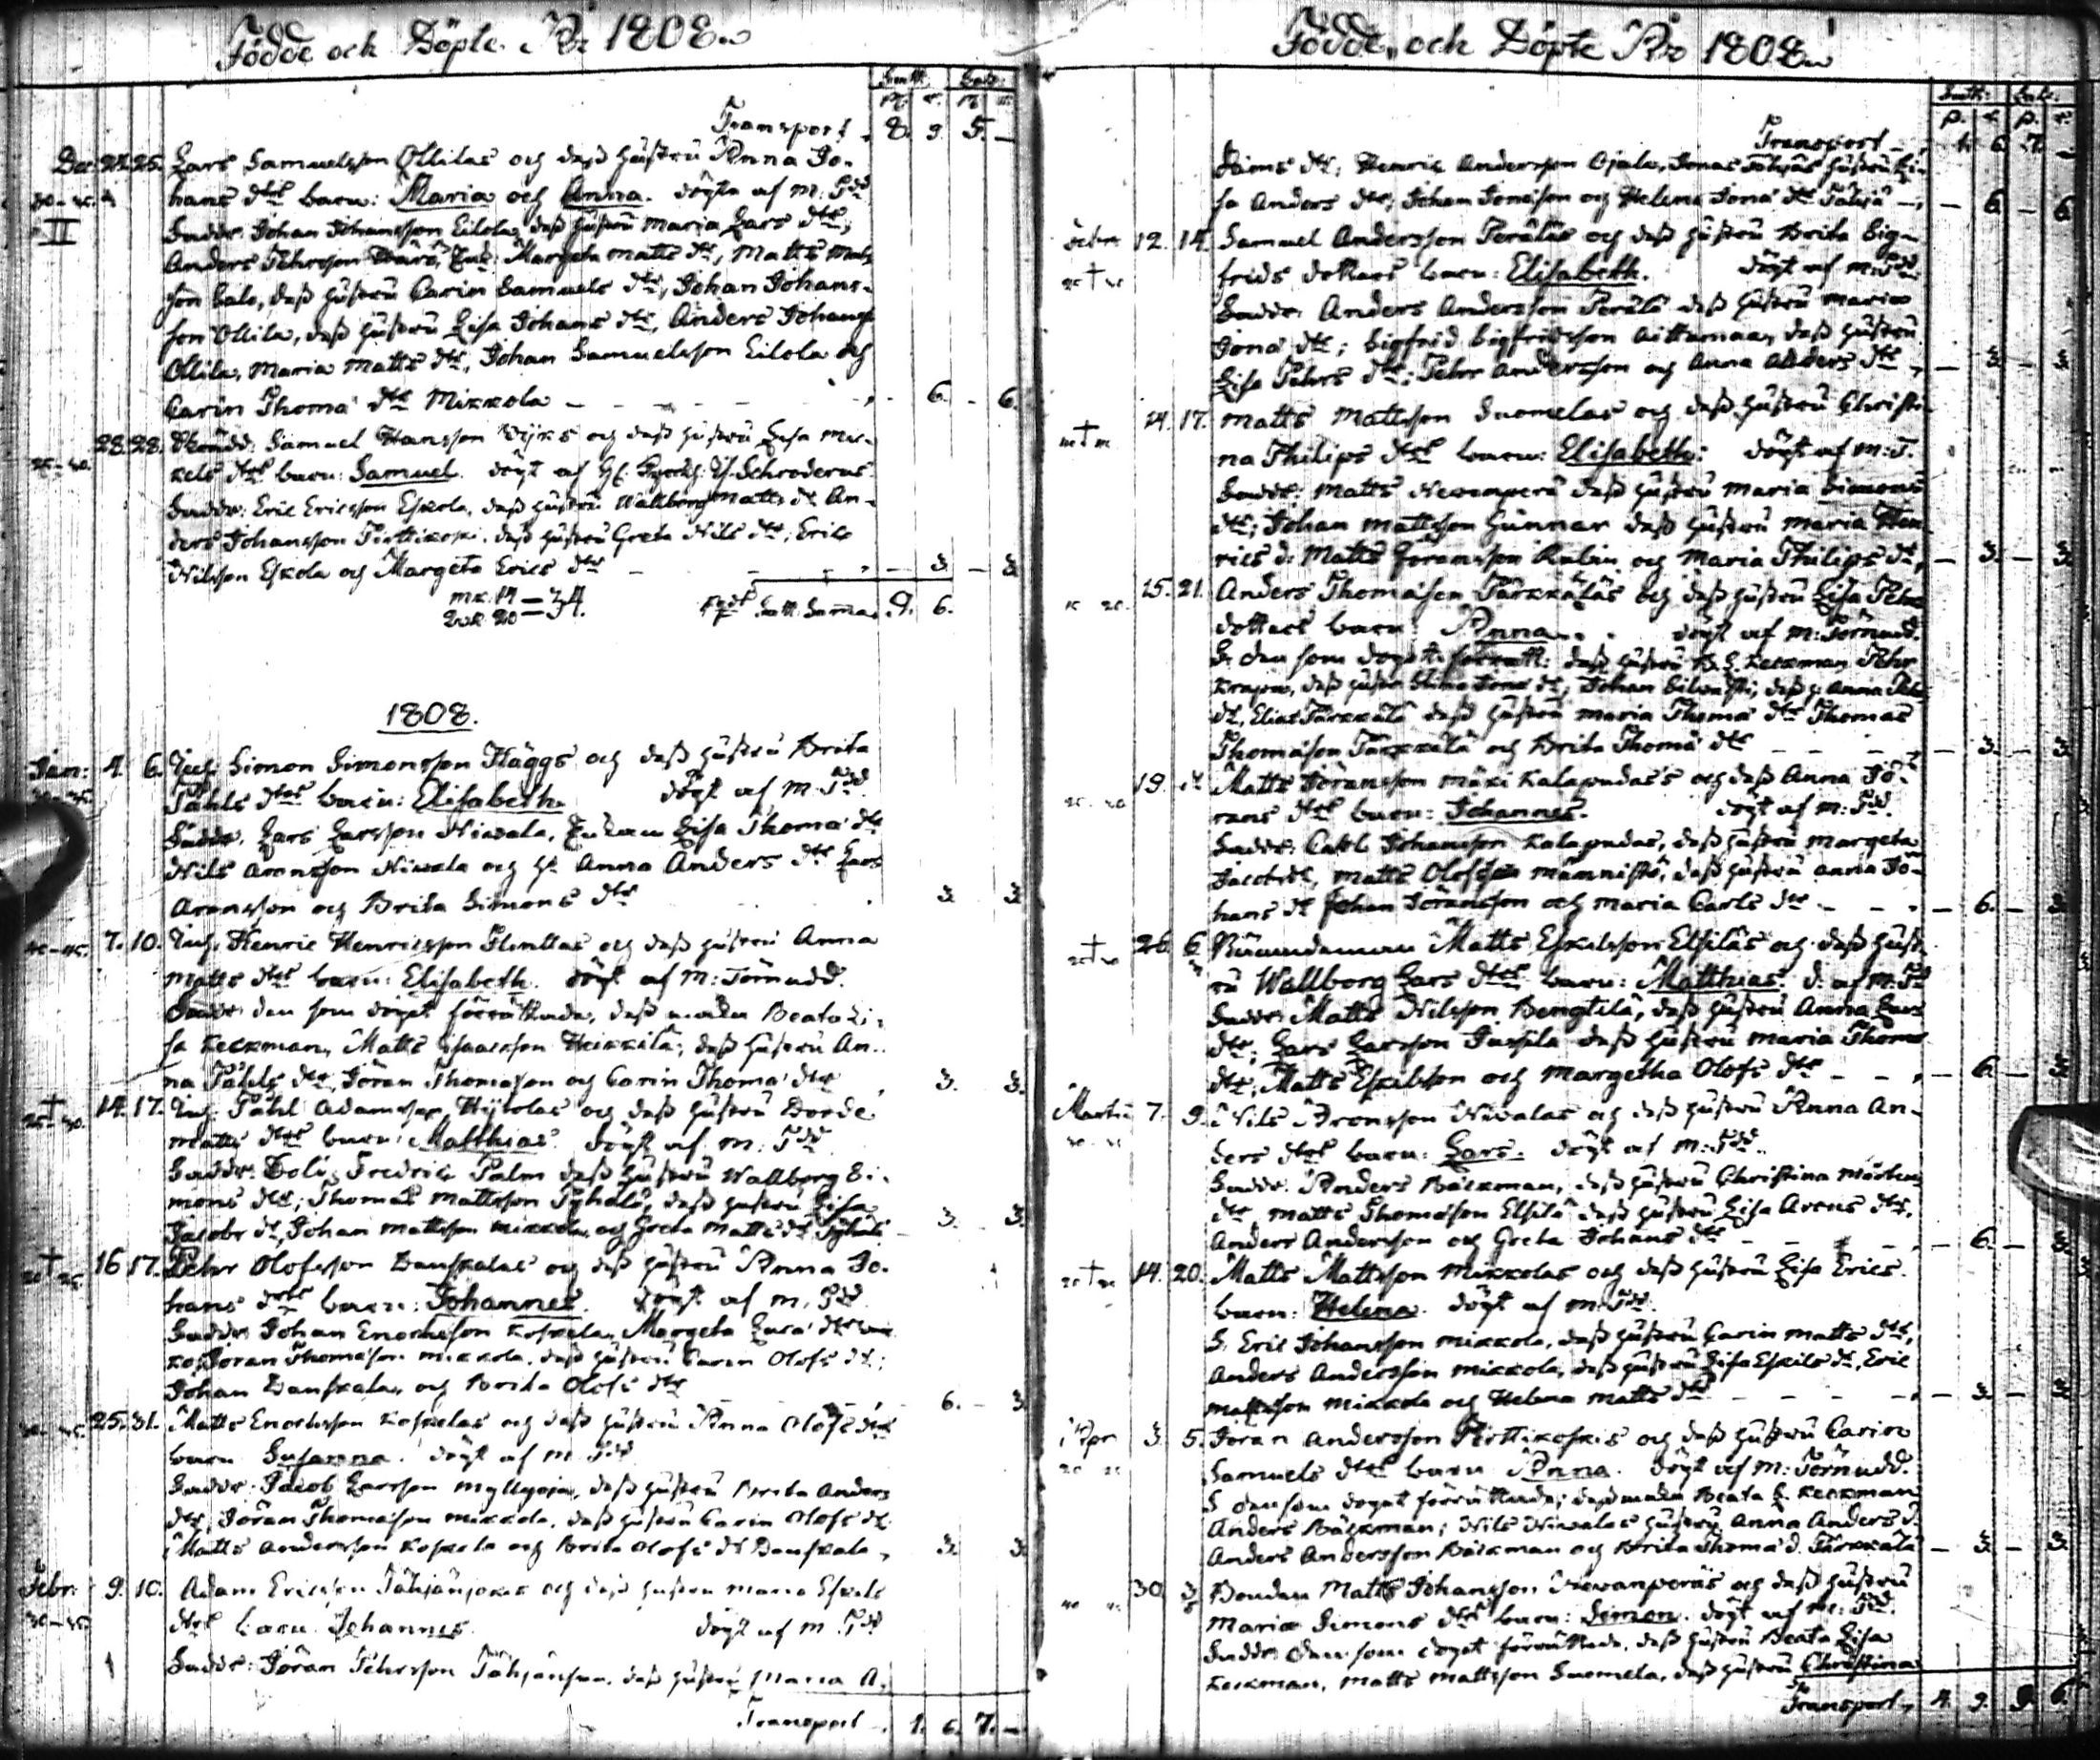 Födde och Döpte År 1808.
Transport 8. 9. 5. —
Dec. 24. 25. Lars Samuelsson Ollilas och dess hustru Anna Jo-
hans dtrs barn: Maria och Anna. döpte af m: Tdd
Faddr: Johan Johansson Eilola, dess hustru Maria Lars dtr,
Anders Pehrsson Pig: Margeta Matts dtr, Matts Mats
son Salo, dess hustru Carin Samuels dtr, Johan Johans-
son Ollila, dess hustru Lisa Johans dtr, Anders Johans
Ollila, Maria Matts dtr, Johan Samuelsson Eilola och
Carin Thomæ dtr Mikkola — 6. — 6.
28. 28. Samuel Hansson Wijks och dess hustru Lisa Mic-
kels dtrs barn: Samuel. döpt af Schroderus
Faddr: Eric Ericsson Eskola, dess hustru Wallborg Matts dr An-
ders Johansson Pirttikoski, dess hustru Greta Nils dtr, Eric
Nilsson Eskola och Margeta Erics dtr — 3. — 3.
mk. 14
qvk. 20 = 34. Summa. 9. 6.
1808.
Jan: 4. 6. Simon Simonsson Häggs och dess hustru Brita
Påhls dtrs barn: Elisabeth. döpt af M. Tdd
Faddr. Lars Larsson Niwala, Lisa Thomæ dtr
Nils Aronsson Niwala och H. Anna Anders dtr Lars
Aronsson och Brita Simons dtr 3. 3.
7. 10. Henric Henricsson och dess hustru Anna
Matts dtrs barn: Elisabeth. döpt af M: Törnudd.
Faddr: den som döpet förrättade, dess maka Beata Li-
sa Keckman, Matts Isaacsson Heikkilä, dess hustru An-
na Påhls dtr, Jöran Thomasson och Carin Thomæ dtr 3. 3.
14. 17. Påhl Adamsson och dess hustru Borde
Matts dtrs barn: Matthias. döpt af M: Tdd
Faddr: Fredric Palm dess hustru Wallborg Si-
mons dtr; Thomas Mattsson Pyhälä, dess hustru Lisa
Jacobs dr, Johan Mattsson Mikkola, och Greta Matts dr 3. 3.
16 17. Pehr Olofsson Danskalas och dess hustru Anna Jo-
hans dtrs barn: Johannes. döpt af M. Tdd
Faddr: Johan Enochsson Koskela, Margeta
Jöran Thomasson Mikkola, dess hustru Carin Olofs dr;
Johan Danskala, och Brita Olofs dtr 6. — 3.
25. 31. Matts Enochsson Koskelas och dess hustru Anna Olofs dtrs
barn Susanna. döpt af M. Tdd
Faddr: Jacob Larsson Myllyoja, dess hustru Brita Anders
dtr, Jöran Thomasson Mikkola, dess hustru Carin Olofs dr
Matts Andersson Koskela och Brita Olofs dr Danskala, 3. 3.
Febr: 9. 10. Adam Ericsson Tähjänjokis och dess hustru Maria Eskils
dtrs barn Johannes. döpt af M Tdd
Faddr: Jöran Pehrsson dess hustru Maria A.
Transport 1. 6. 7. —
Födde, och Döpte År 1808.
Transport — 1. 6. 7. —
Henric Andersson Ojala, Jonas hustru Li-
sa Anders dtr; Johan Jonasson och Helena Jonæ dtr — 6. — 6.
Febr. 12. 14. Samuel Andersson Peräläs och dess hustru Brita Sig-
frids dotters barn: Elisabeth. döpt af M: Tdd
Faddr: Anders Andersson Perälä dess hustru Maria
Jonæ dtr; Sigfrid Sigfridsson Aittamaa, dess hustru
Lisa Pehrs dtr; Pehr Andersson och Anna Anders dtr — 3. — 3.
14. 17. Matts Mattsson Suomelas och dess hustru Christi-
na Philips dtrs barn: Elisabeth: döpt af M: T.
Faddr: Matts Newanperä dess hustru Maria Simons
dtr; Johan Mattsson Gunnar dess hustru Maria Hen-
rics d: Matts Göransson och Maria Philips dr, — 3. — 3.
15. 21. Anders Thomasson Tärkkäläs och dess hustru Lisa Pehrs
dotters barn: Anna. döpt af M: Törnudd.
F. den som dopet förrätt: dess hustru B. L. Keckman Pehr
dess hustru Jonæ dr, Johan dess h: Anna
dr, Elias Tärkkälä dess hustru Maria Thomæ dtr Thomas
Thomasson Tärkkälä och Brita Thomæ dtr — 3. — 3.
19. dr Matts Jöransson Mäki Kalapudas's och dess Anna Jö-
rans dtrs barn: Johannes. döpt af M: Tdd.
Faddr: Carl Johansson Kalapudas, dess hustru Margeta
Jacobs dr, Matts Olofsson Männistö, dess hustru Anna Jo-
hans dr Johan Jöransson och Maria Carls dtr — 6. — 3.
26. 6. Matts Eskilsson Elsiläs och dess hust-
ru Wallborg Lars dtrs barn: Matthias. d. af M: Tdd
Faddr: Matts Nilsson Bengtilä, dess hustru Anna Lars
dtr; Lars Larsson Jussila dess hustru Maria Thomæ
dtr, Matts Eskilsson och Margetha Olofs dtr — 6. — 3.
Martii 7. 9. Nils Aronsson Niwalas och dess hustru Anna An-
ders dtrs barn: Lars. döpt af M: Tdd.
Faddr: Anders Bäckman, dess hustru Christina Mårtens
dtr Matts Thomasson Elsilä dess hustru Lisa Arons dtr,
Anders Andersson och Greta Johans dtr — 6. — 3.
14. 20. Matts Mattsson Mikkolas och dess hustru Lisa Erics
barn: Helena. döpt af M: Tdd.
F. Eric Johansson Mikkola, dess hustru Carin Matts dtr,
Anders Andersson Mikkola, dess hustru Lisa Eskils dr, Eric
Mattsson Mikkola och Helena Matts dtr — 3. — 3.
Apr 3. 5. Jöran Andersson Pirttikoskis och dess hustru Carin
Samuels dtrs barn Anna. döpt af M: Törnudd.
F den som dopet förrättade; dess maka Beata L. Keckman
Anders Bäckman; Nils Niwalas hustru Anna Anders d.
Anders Andersson Bäckman och Brita Thomæ d. Tärkkälä — 3. — 3.
30. 3/5 Bonden Matts Johansson Newanperäs och dess hustru
Maria Simons dtrs barn: Simon. döpt af M: Tdd.
Faddr: den som dopet förrättade, dess hustru Beata Lisa
Keckman, Matts Mattsson Suomela, dess hustru Christina
Transport, 4. 9. 9. 6.